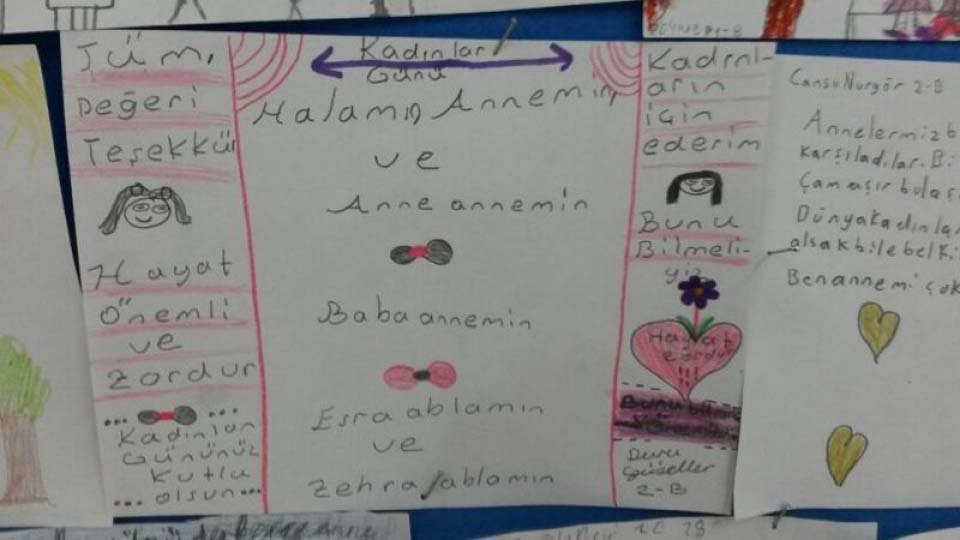 Tüm,
Değeri
Teşekkür
Hayat
Önemli
ve
Zordur
... ...
Kadınlar
Gününüz
Kutlu
... olsun ...
Kadınlar
Günü
Halamın, Annemin
ve
Anne annemin
Baba annemin
Esra ablamın
ve
Zehra ablamın
Kadınl-
arın
için
ederim
Bunu
Bilmeli-
yiz
Hayat
zordur
!!!
Bunu
Duru
Güzeller
2-B
Cansu Nurgör 2-B
Annelermiz b
karşıladılar. Bi
çamaşır bulaşı
Dünya kadınlar
alsak bile belki
Ben annemi çok